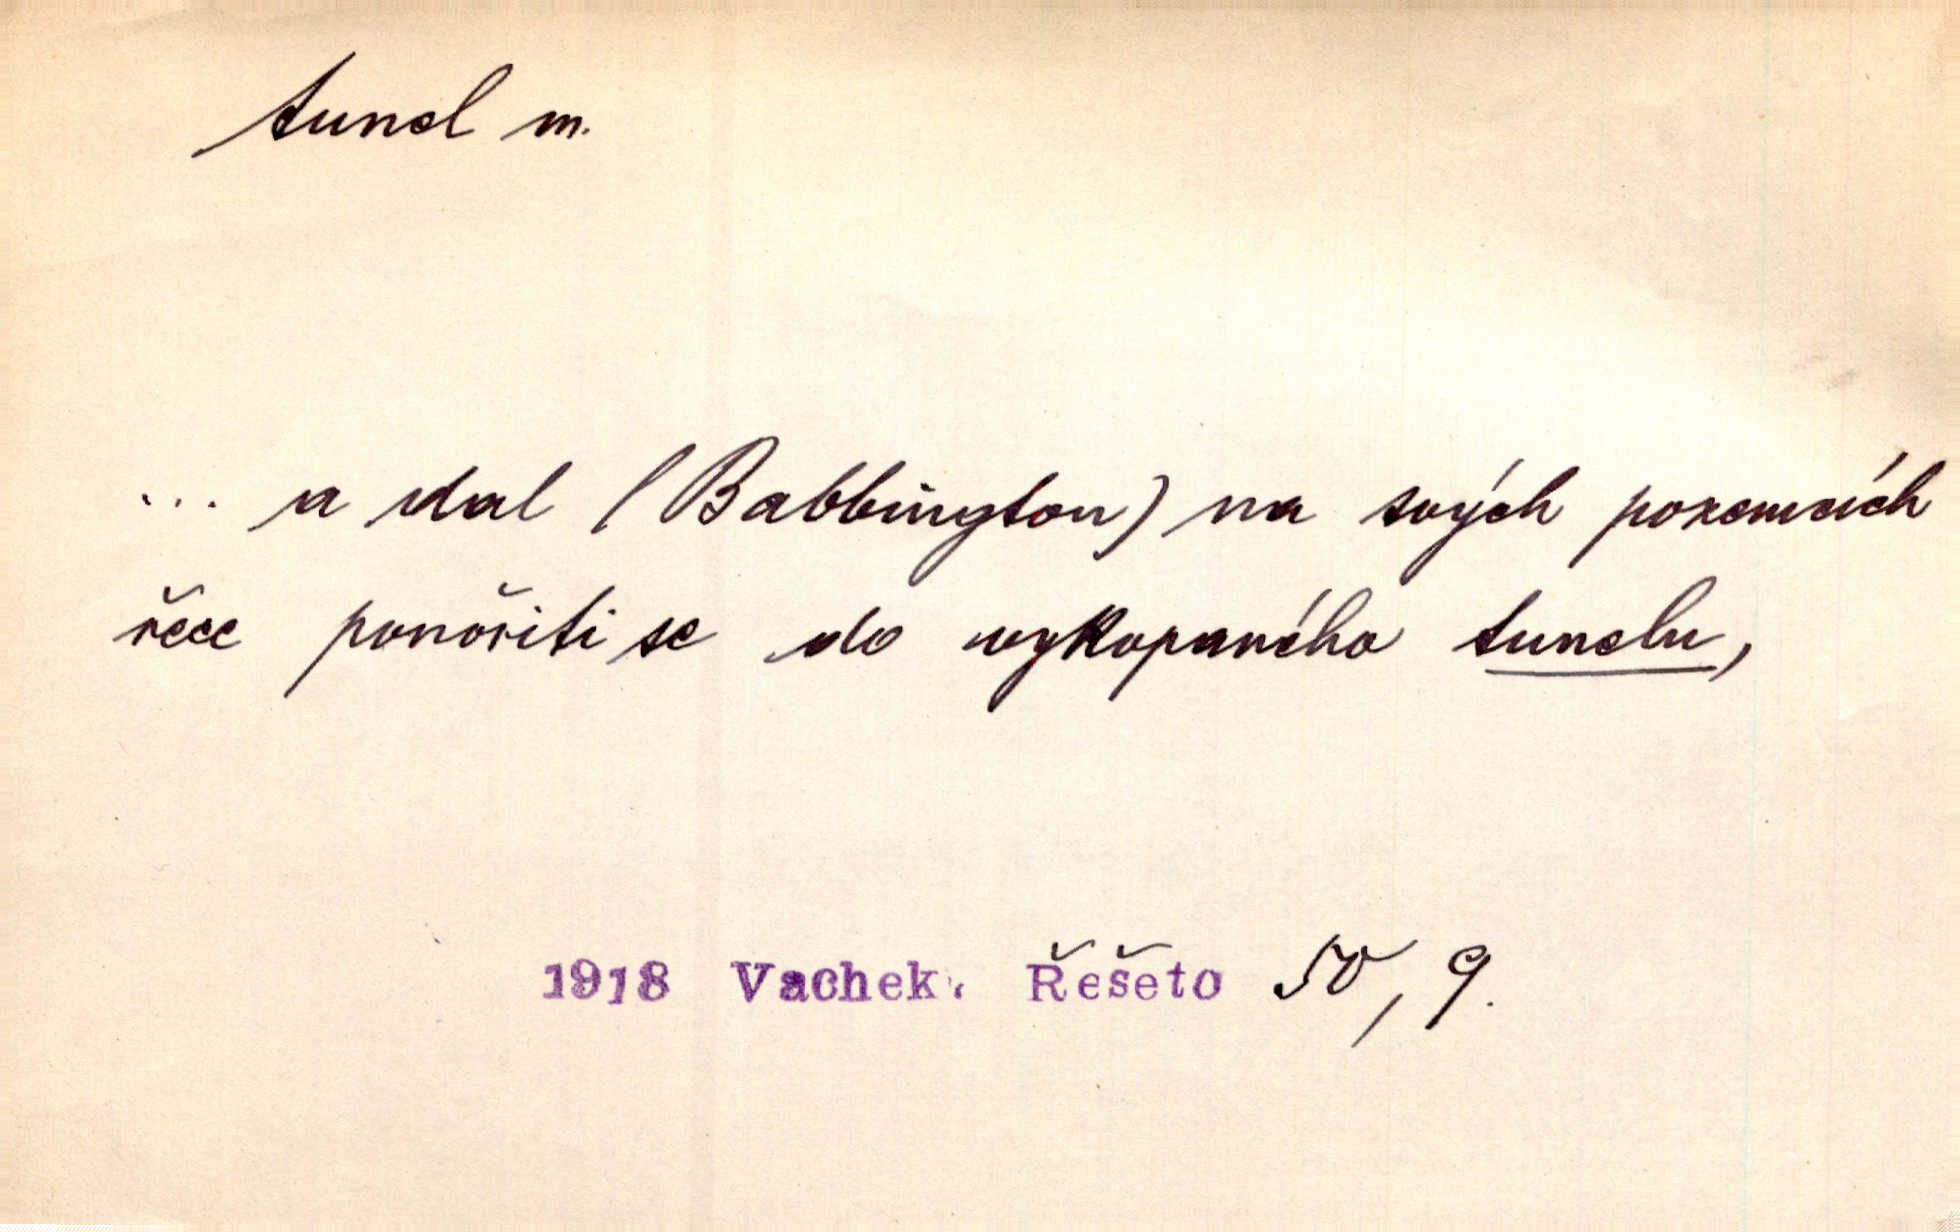 tunel m.
... a dal (Babbington) na svých pozemcích
řece ponořiti se do vykopaného tunelu,
1918 Vachek. Řešeto 50, 9.